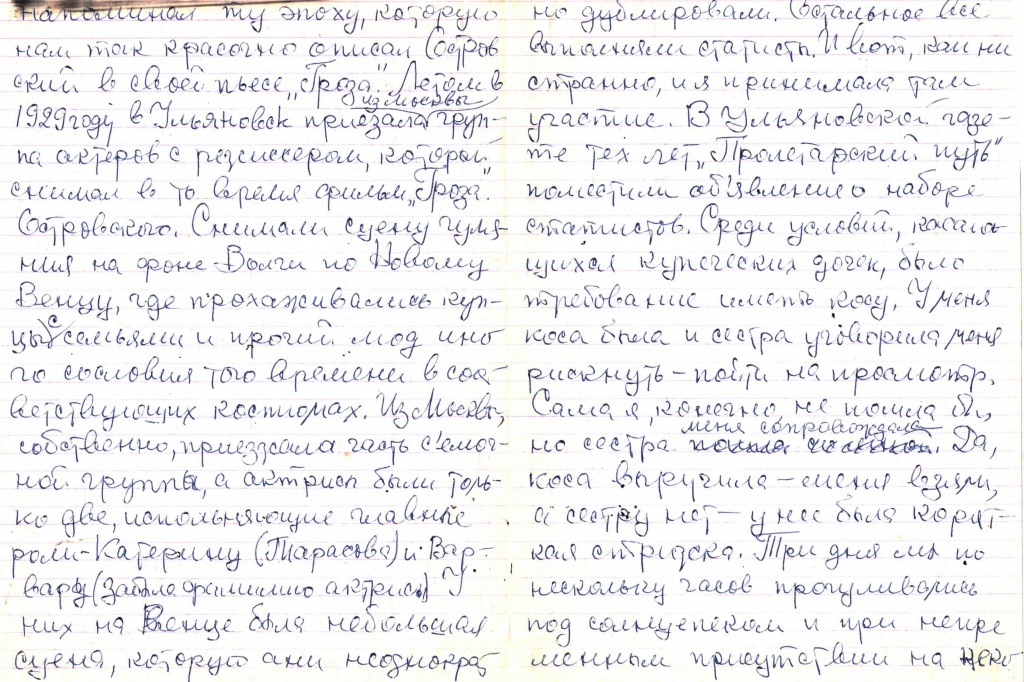 напоминал ту эпоху, которую
нам так красочно описал Остров
ский в своей пьесе „Гроза". Летом в
из Москвы
1929 году в Ульяновск приезала груп-
па актеров с режиссером, который
снимал в то время фильм „Гроза"
Островского. Снимали сцену гуля-
ния на фоне Волги по Новому
Венцу, где прохаживались куп-
цы с семьями и прочий люд ино
го сословия того времени в соо-
ветствующих костюмах. Из Москвы,
собственно, приезжала часть с'емоч-
ной группы, а актрис были толь-
ко две, исполняющие главные
роли - Катерину (Тарасова) и Вар-
вару (Забыла фамилию актрисы) У
них на Венце была небольшая
сцена, которую они неоднократ
но дублировали. Остальное все
выполняли статисты. И вот, как ни
странно, и я принимала там
участие. В Ульяновской газе-
те тех лет „Пролетарский путь"
поместили об'явление о наборе
статистов. Среди условий, касаю-
щихся купеческих дочек, было
требование иметь косу. У меня
коса была и сестра уговорила меня
рискнуть - пойти на просмотр.
Сама я, конечно, не пошла бы,
меня сопровождала
но сестра пошла со мной. Да,
коса выручила - меня взяли,
а сестру нет - у нее была корот-
кая стрижка. Три дня мы по
нескольку часов прогуливались
под солнцепеком и при непре
менным присутствии на